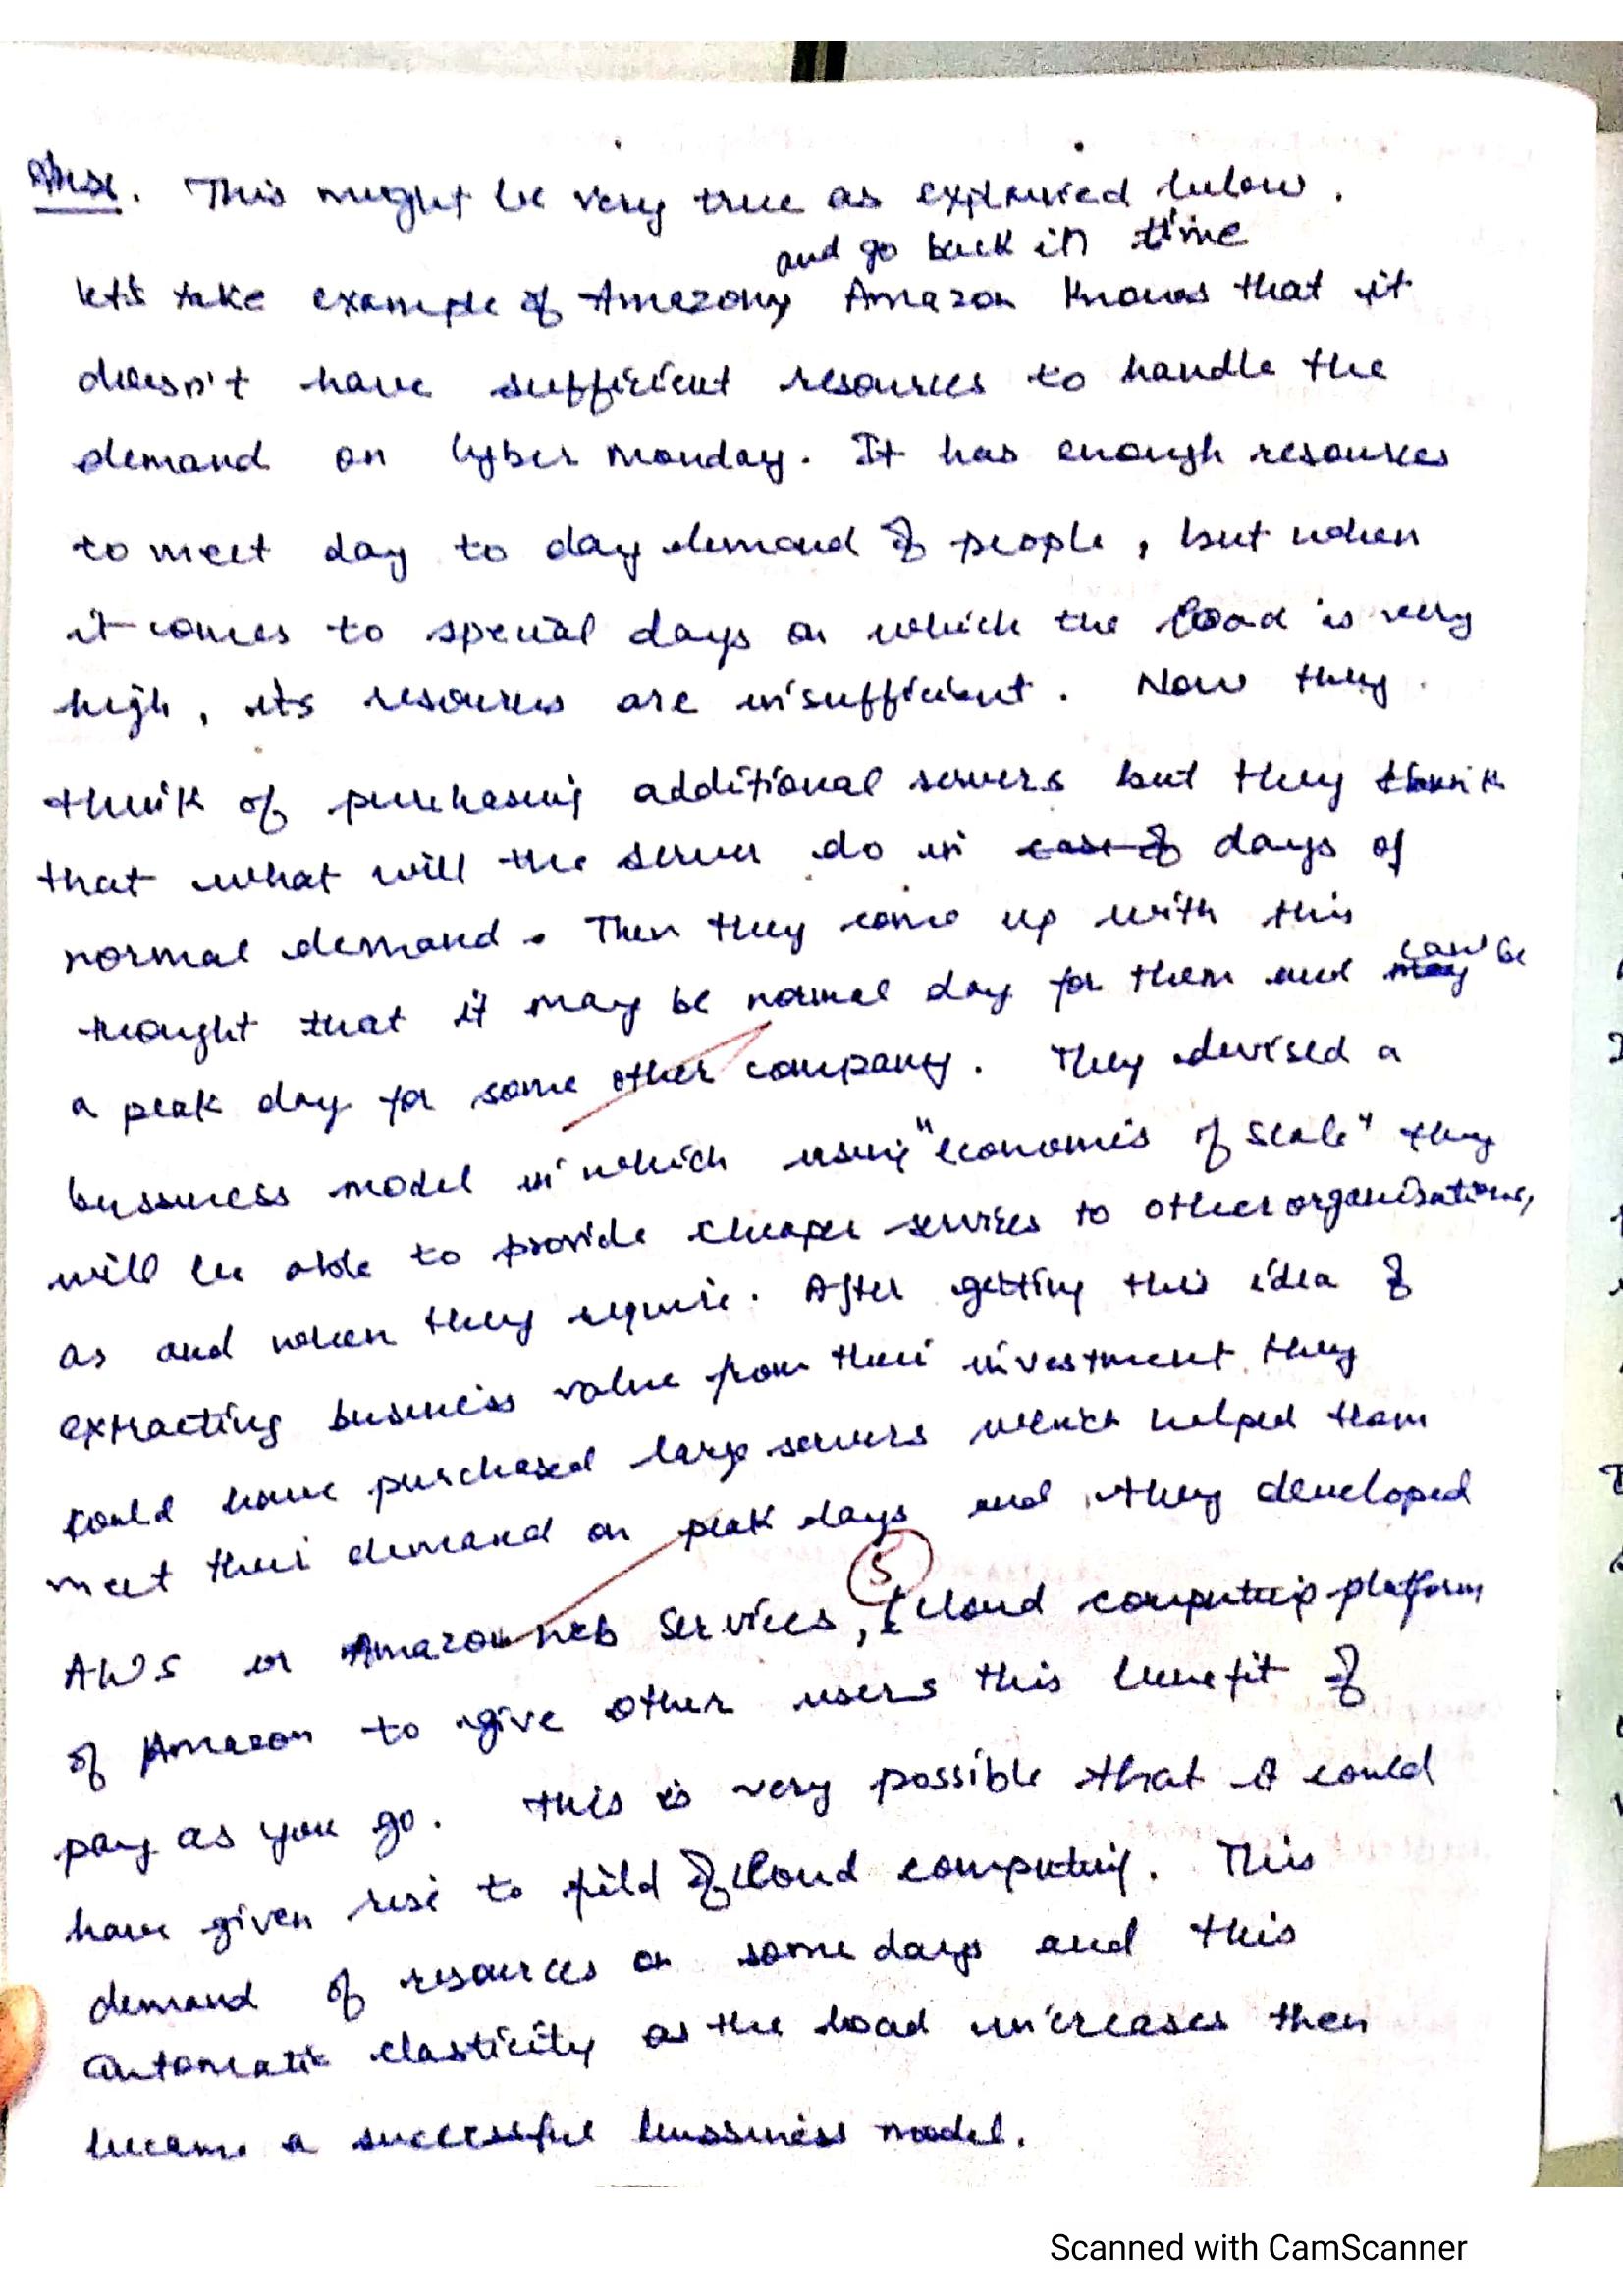 Ans. This might be very true as explained below.
and go back in time
let's take example of Amazon, Amazon knows that it
doesn't have sufficient resources to handle the
demand on Cyber Monday. It has enough resources
to meet day to day demand of people, but when
it comes to special days on which the load is very
high, its resources are insufficient. Now they
think of purchasing additional servers but they think
that what will the server do in case of days of
normal demand. Then they come up with this
thought that it may be normal day for them and may can be
a peak day for some other company. They devised a
bussiness model in which using "economis of scale" they
will be able to provide cheaper services to other organisations,
as and when they require. After getting this idea of
extracting business value from their investment they
could have purchased large servers which helped them
meet their demand on peak days and they developed
5
AWS or Amazon web Services, cloud computing platform
of Amazon to give other users this benefit of
pay as you go. This is very possible that it could
have given rise to field of cloud computing. This
demand of resources on some days and this
automatic elasticity as the load increases then
became a successful bussiness model.
Scanned with CamScanner